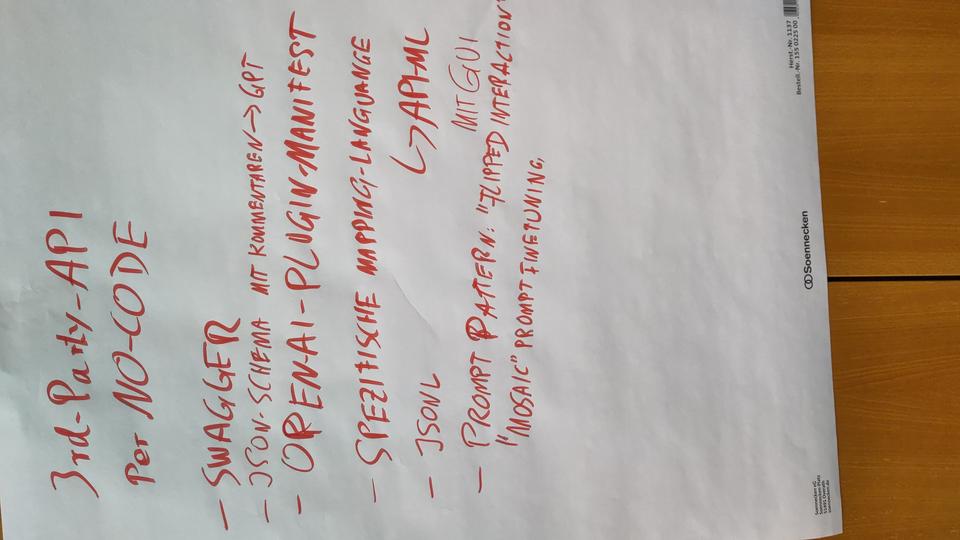 3rd-Party-API
Per NO-CODE
- SWAGGER
- JSON-SCHEMA MIT KOMMENTAREN -> GPT
- OPENAI-PLUGIN-MANIFEST
- SPEZIFISCHE MAPPING-LANGUANGE
↳ API-ML
- JSONL
MIT GUI
- PROMPT PATTERN: "FLIPPED INTERACTION"
"MOSAIC" PROMPT FINETUNING,
Soennecken
Herst.-Nr. 1137
Bestell.-Nr. 155 0225 00
Soennecken eG
Soennecken-Platz
51491 Overath
soennecken.de